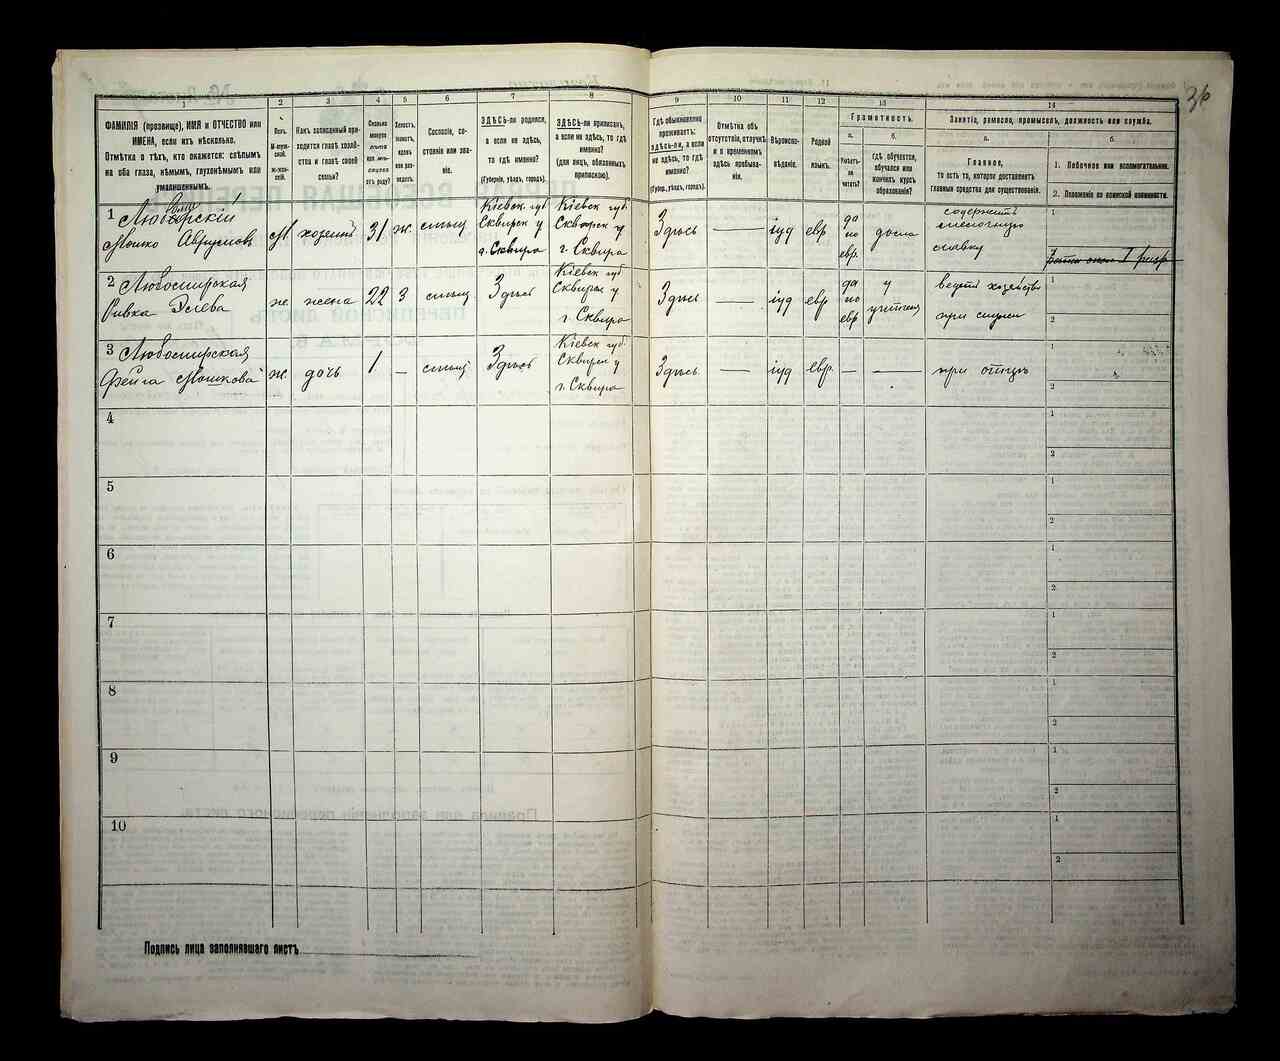 36
1
2
3
4
5
6
7
8
9
10
11
12
13
14
ФАМИЛІЯ (прозвище), ИМЯ и ОТЧЕСТВО или
ИМЕНА, если ихъ нѣсколько.
Отмѣтка о тѣхъ, кто окажется: слѣпымъ
на оба глаза, нѣмымъ, глухонѣмымъ или
умалишеннымъ.
Полъ.
М-муж-
ской.
Ж-жен-
скій.
Какъ записанный при-
ходится главѣ хозяй-
ства и главѣ своей
семьи?
Сколько
минуло
лѣтъ
или мѣ-
сяцевъ
отъ роду?
Холостъ,
женатъ,
вдовъ
или раз-
веденъ.
Сословіе, со-
стояніе или зва-
ніе.
ЗДѢСЬ-ли родился,
а если не здѣсь,
то гдѣ именно?
(Губернія, уѣздъ, городъ).
ЗДѢСЬ-ли приписанъ,
а если не здѣсь, то гдѣ
именно?
(для лицъ, обязанныхъ
припискою).
Гдѣ обыкновенно
проживаетъ:
здѣсь-ли, а если
не здѣсь, то гдѣ
именно?
(Губерн., уѣздъ, городъ).
Отмѣтка объ
отсутствіи, отлучкѣ
и о временномъ
здѣсь пребыва-
ніи.
Вѣроиспо-
вѣданіе.
Родной
языкъ.
Грамотность.
а.
Умѣетъ-
ли
читать?
б.
Гдѣ обучается,
обучался или
кончилъ курсъ
образованія?
Занятіе, ремесло, промыселъ, должность или служба.
а.
Главное,
то есть то, которое доставляетъ
главныя средства для существованія.
б.
1. Побочное или вспомогательное.
2. Положеніе по воинской повинности.
1
Мошко
М
хозяинъ
31
ж.
Кіевск. губ
Сквирск у
г. Сквира
Кіевск губ
Сквирск у
г. Сквира
Здѣсь
іуд
евр
да
по
евр.
дома
содержитъ
лавку
1
2 Любомирская
Ривка
ж.
жена
22
З
Здѣсь
Кіевск губ
Сквирск у
г. Сквира
Здѣсь
іуд
евр
да
по
евр
у
учителя
ведетъ хозяйство
при мужѣ
1
2
3 Любомирская
Фейга Мошкова
ж.
дочь
1
Здѣсь
Кіевск губ
Сквирск у
г. Сквира
Здѣсь
іуд
евр.
при отцѣ
1
2
4
1
2
5
1
2
6
1
2
7
1
2
8
1
2
9
1
2
10
1
2
Подпись лица заполнявшаго листъ